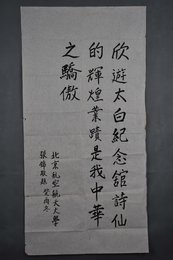 欣遊太白紀念舘詩仙
的輝煌業蹟是我中華
之驕傲
北京航空航天大學